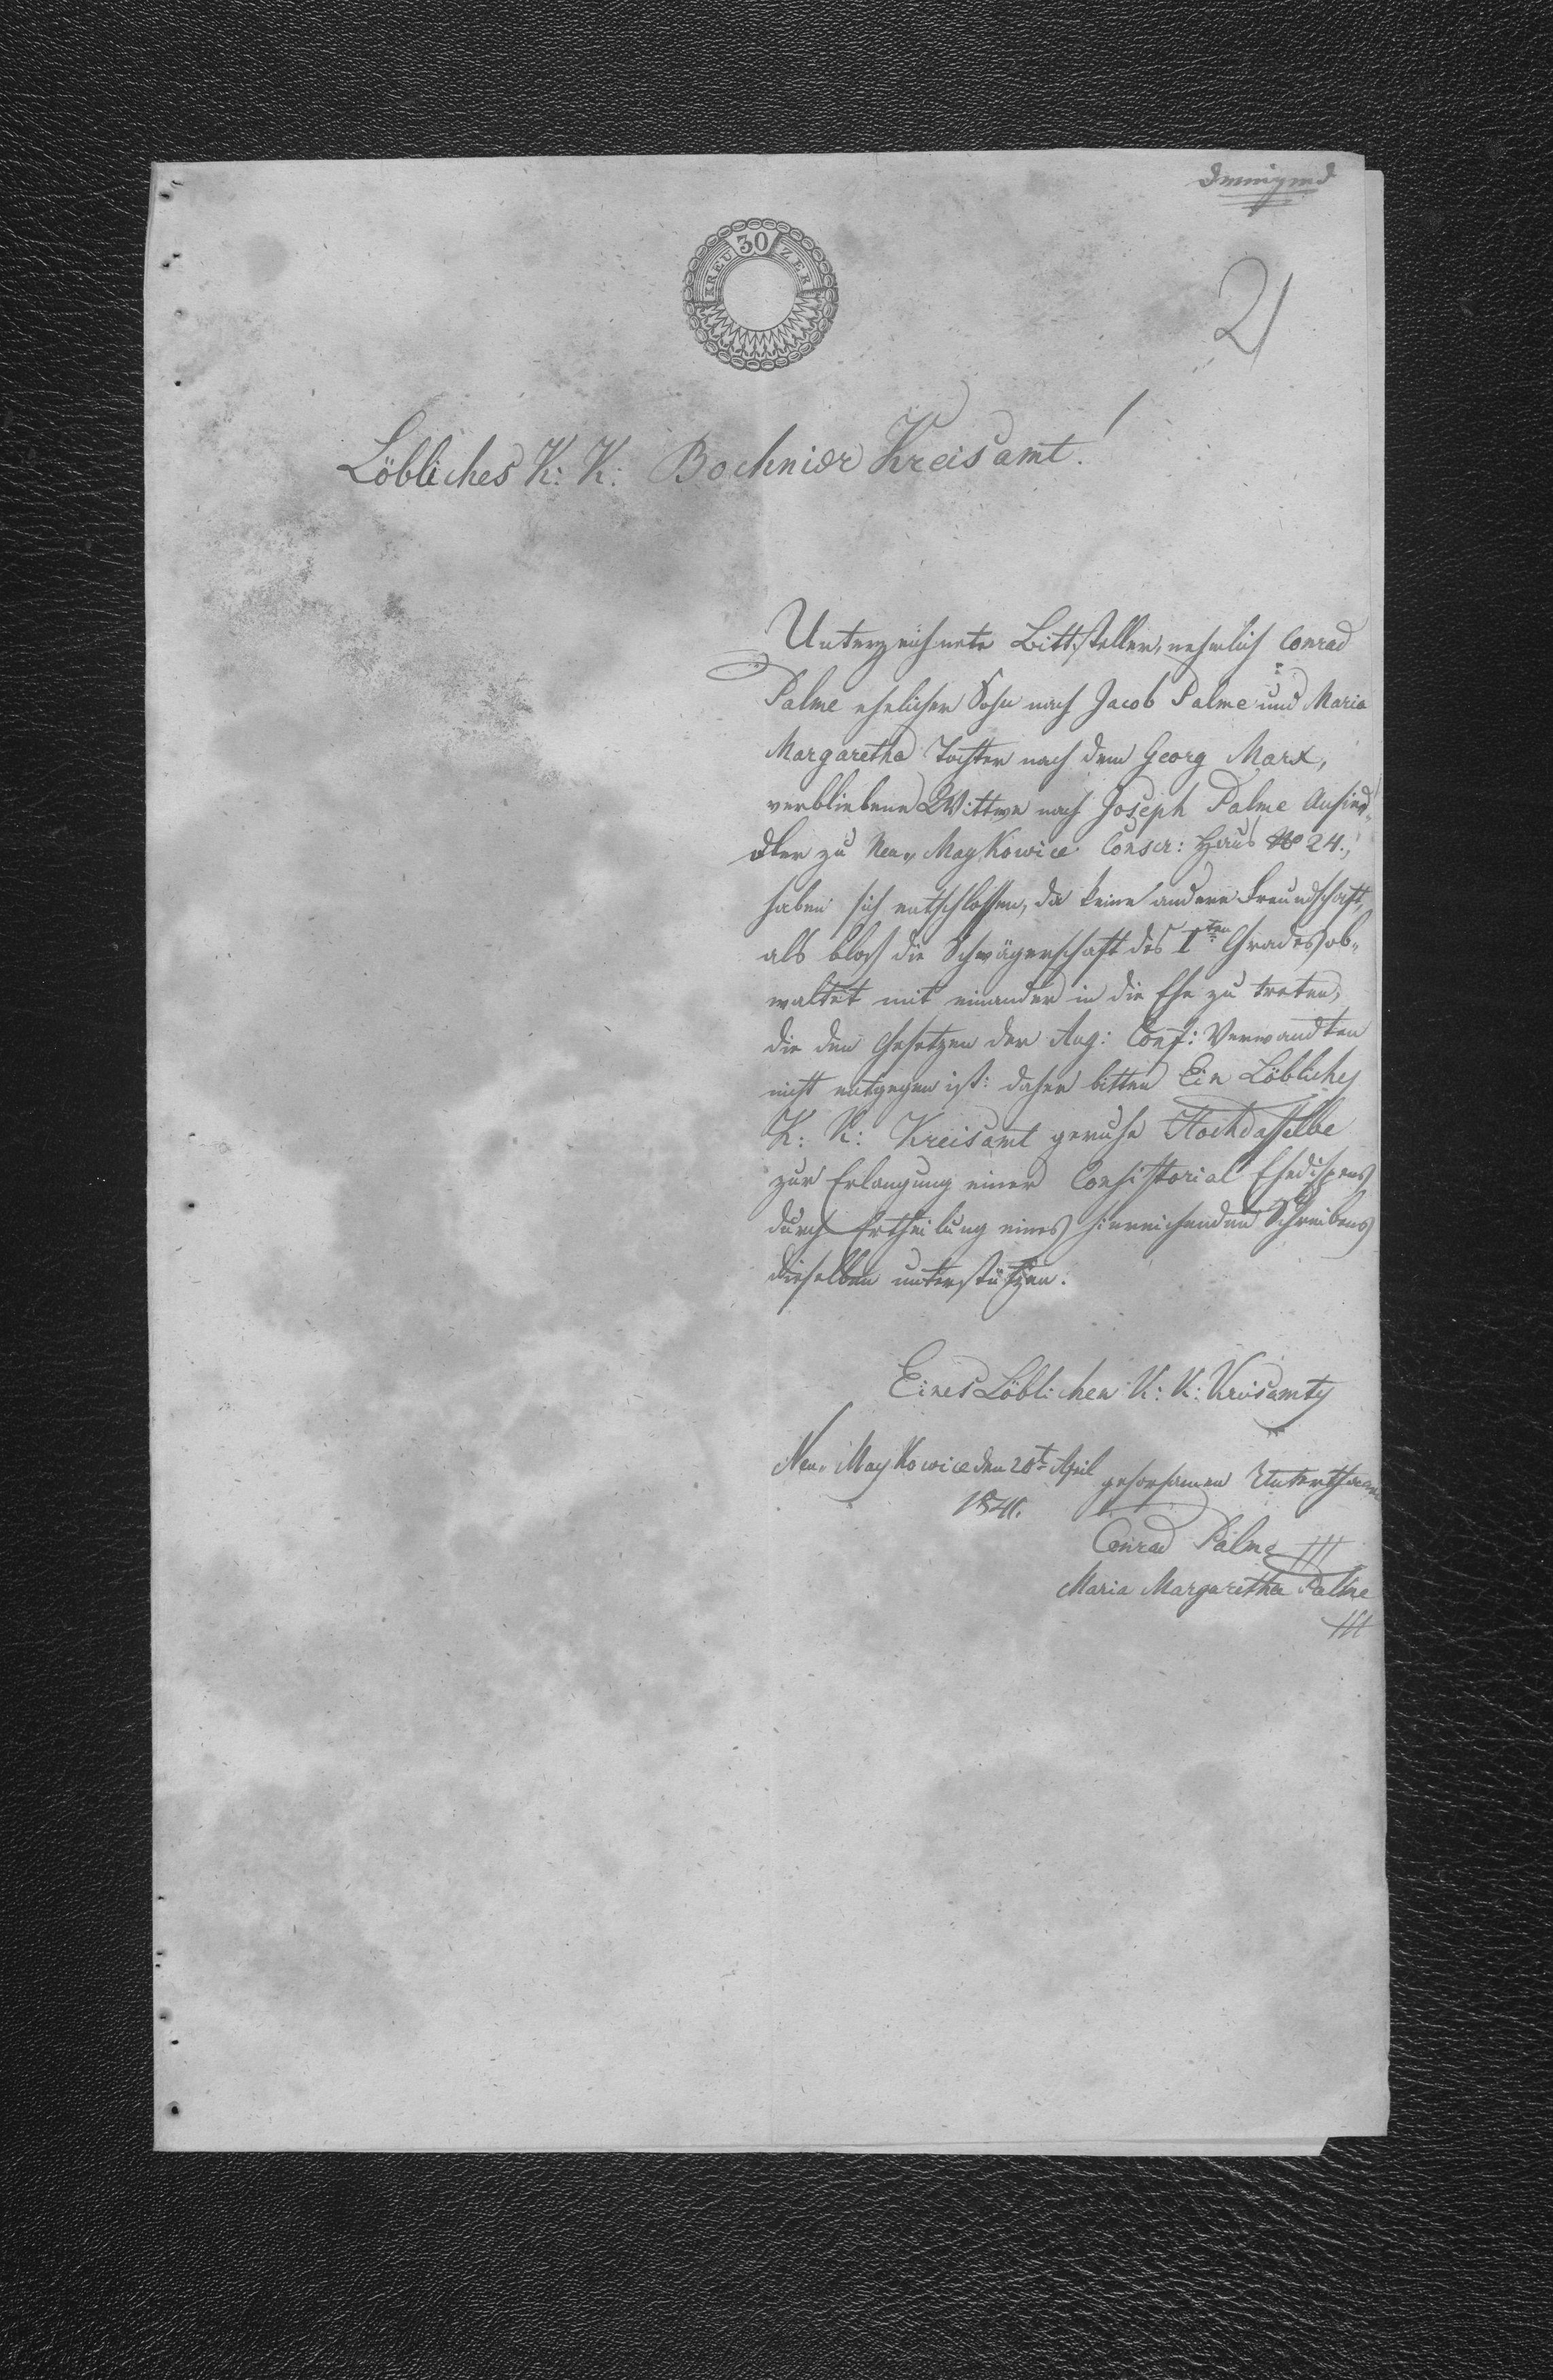 dringend
21
30
KREUZER
Löbliches K: K: Bochnier Kreisamt!
Unterzeichnete Bittsteller, nehmlich Conrad
Palme ehelicher Sohn nach Jacob Palme und Maria
Margaretha Tochter nach dem Georg Marx,
verbliebene Wittwe nach Joseph Palme Ansied„
dler zu Neu„ Maykowice Conscr: Haus No 24.,
haben sich entschlossen, da keine andere Freundschaft,
als blos die Schwägerschaft des I ten Grades ob„
waltet mit einander in die Ehe zu treten,
die den Gesetzen der Aug: Conf: Verwandten
nicht entgegen ist: daher bitten Ein Löbliches
K: K: Kreisamt geruhe Hochdasselbe
zur Erlangung einer Consistorial Ehedispens
durch Ertheilung eines hinreichenden Schreibens
dieselben unterstützen.
Eines Löblichen K: K: Kreisamts
Neu„ Maykowice den 20t April
1841.
gehorsamen Unterthanen
Conrad Palme +++
Maria Margaretha Palme
+++